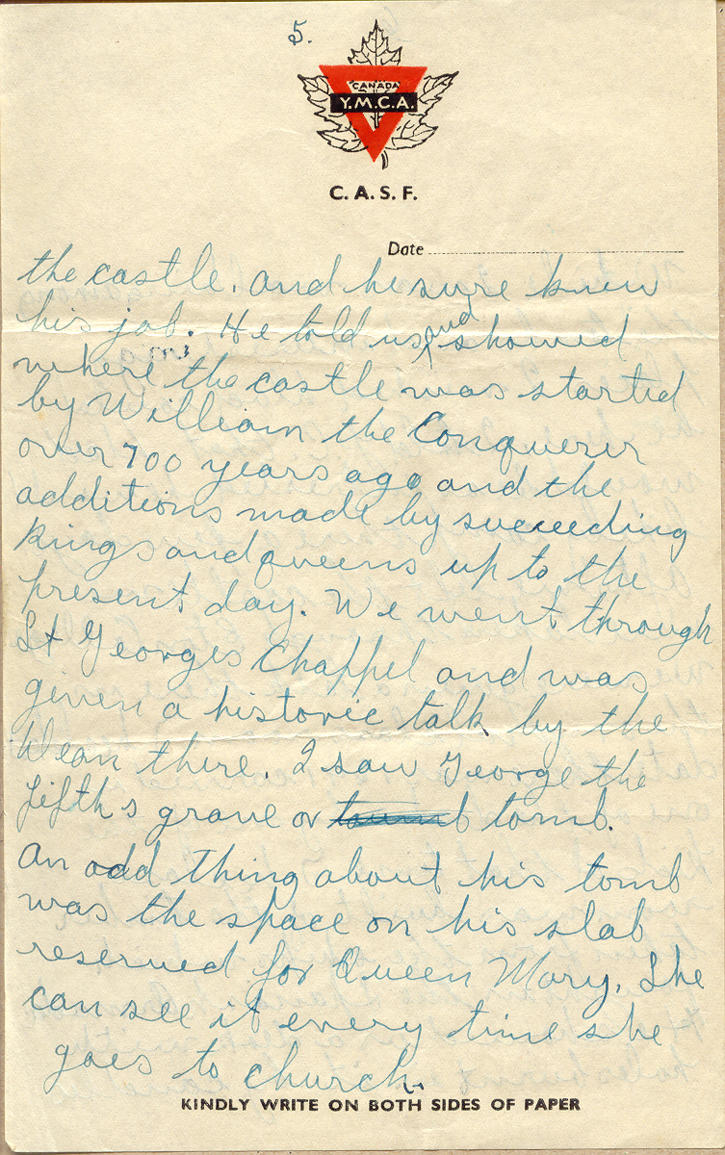 5.
CANADA
Y.M.C.A.
C. A. S. F.
Date
the castle. and he sure knew
his job. He told us and showed
where the castle was started
by William the Conquerer
over 700 years ago and the
additions made by succeeding
Kings and queens up to the
present day. We went through
St Georges Chappel and was
given a historic talk by the
Dean there. I saw George the
fifth s grave or taumb tomb.
An odd thing about his tomb
was the space on his slab
reserved for Queen Mary. She
can see it every time she
goes to church.
KINDLY WRITE ON BOTH SIDES OF PAPER